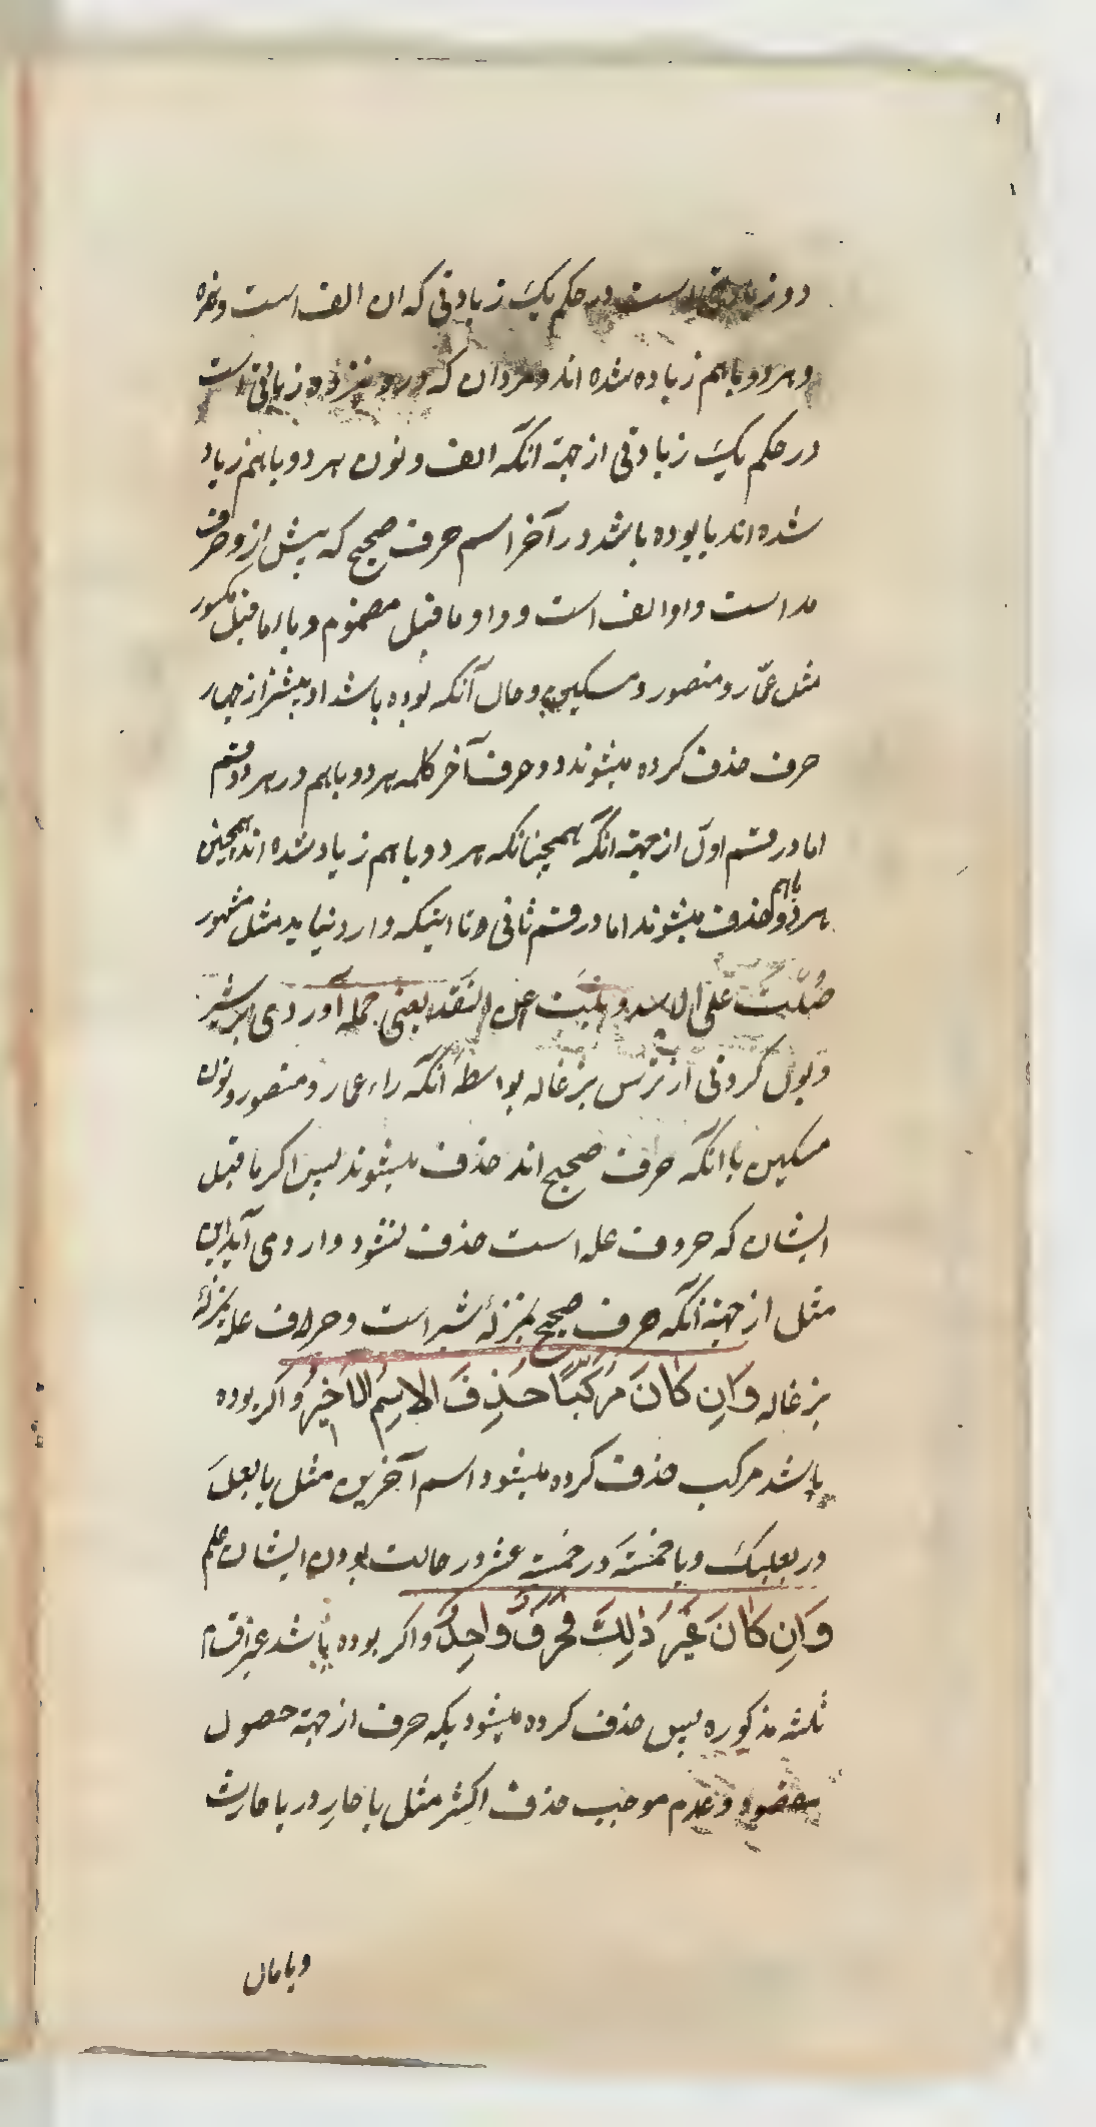 دو زیادتی است در حکم یک زیادتی که ان الف است و همزه
و هر دو باهم زیاده شده اند و مردان که درو نیز دو زیادتی است
در حکم یک زیادتی از جهة انکه الف و نون هر دو باهم زیاد
شده اند یا بوده باشد در آخر اسم حرف صحیح که پیش از و حرف
مد است و او الف است و واو ما قبل مضموم و یاء ما قبل مکسور
مثل عمّار و منصور و مسکین و حال آنکه بوده باشد او بیشتر از چهار
حرف حذف کرده میشوند دو حرف آخر کلمه هر دو باهم در هر دو قسم
اما در قسم اول از جهة انکه همچنانکه هر دو باهم زیاد شده اند همچنین
هر دو باهم حذف میشوند اما در قسم ثانی تا اینکه وارد نیاید مثل مشهور
صُلْتَ علی الاسد و بُلْتَ عن النَقَد یعنی حمله آوردی بر شیر
و بول کردی از ترس بزغاله بواسطهٔ انکه راء عمار و منصور و نون
مسکین با انکه حرف صحیح اند حذف میشوند پس اکر ما قبل
ایشان که حروف عله است حذف نشود وارد می آید این
مثل از جهة انکه حرف صحیح بمنزلهٔ شیر است و حرف عله بمنزلهٔ
بزغاله وَاِن کَانَ مُرَکَّبًا حُذِفَ الاِسمُ الاَخِیرُ و اکر بوده
باشد مرکب حذف کرده میشود اسم آخرین مثل یا بعلَ
در بعلبک و یا خمسةَ در خمسة عشر در حالت بودن ایشان علم
وَاِن کَانَ غَیرَ ذٰلِكَ فَحَرفٌ وَاحِدٌ و اکر بوده باشد غیر اقسام
ثلثه مذکوره پس حذف کرده میشود یکه حرف از جهة حصول
مقصود و عدم موجب حذف اکثر مثل یا حارِ در یا حارث
و یا مال